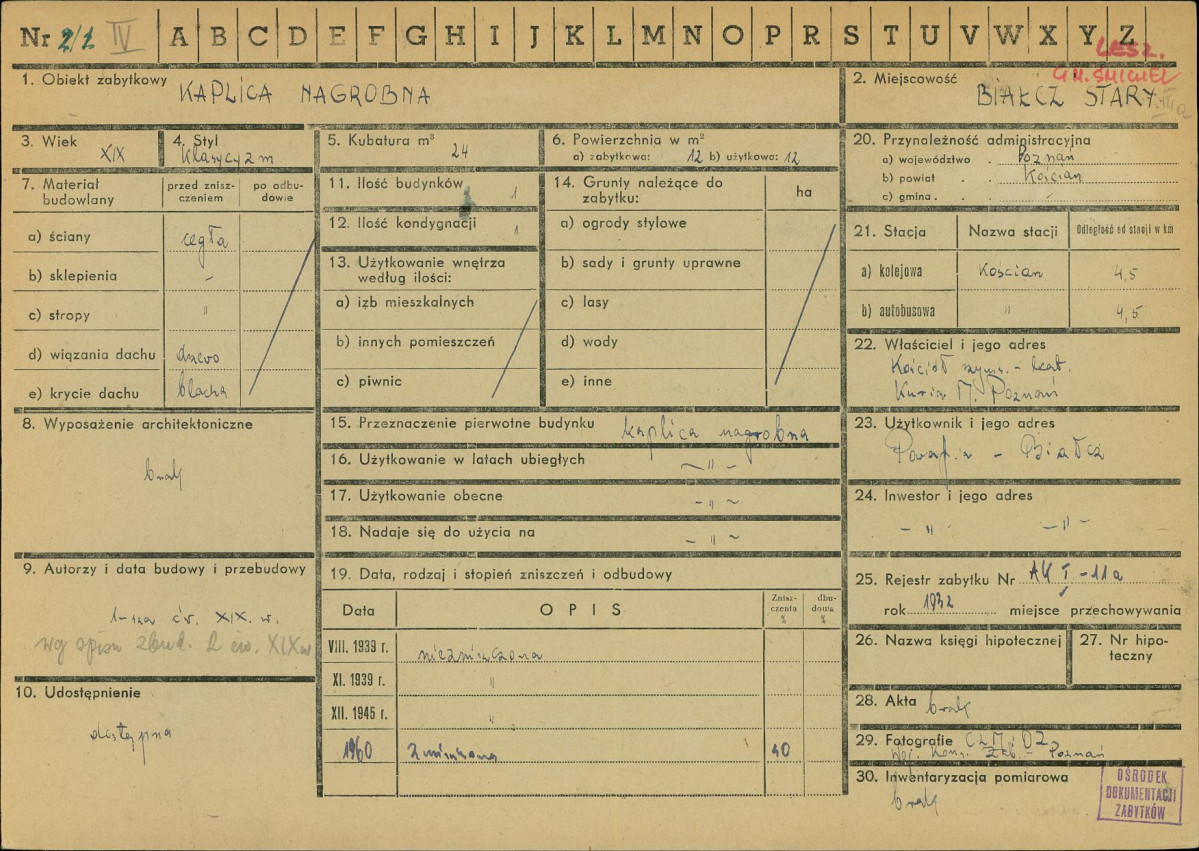 Nr 2/1 IV A B C D E F G H I J K L M N O P R S T U V W X Y Z
LESZ.
GM. ŚMIGIEL
1. Obiekt zabytkowy KAPLICA NAGROBNA
2. Miejscowość BIAŁCZ STARY
3. Wiek XIX
4. Styl klasycyzm
5. Kubatura m³ 24
6. Powierzchnia w m²
a) zabytkowa: 12 b) użytkowa: 12
7. Materiał budowlany
przed zniszczeniem
po odbudowie
a) ściany cegła
b) sklepienia -
c) stropy "
d) wiązania dachu drzewo
e) krycie dachu blacha
8. Wyposażenie architektoniczne
brak
9. Autorzy i data budowy i przebudowy
1-sza ćw. XIX. w.
wg opisu zbud. 2 ćw. XIX w
10. Udostępnienie
dostępna
11. Ilość budynków 1
12. Ilość kondygnacji 1
13. Użytkowanie wnętrza
według ilości:
a) izb mieszkalnych
b) innych pomieszczeń
c) piwnic
14. Grunty należące do
zabytku:
ha
a) ogrody stylowe
b) sady i grunty uprawne
c) lasy
d) wody
e) inne
15. Przeznaczenie pierwotne budynku kaplica nagrobna
16. Użytkowanie w latach ubiegłych - " -
17. Użytkowanie obecne - " -
18. Nadaje się do użycia na - " -
19. Data, rodzaj i stopień zniszczeń i odbudowy
Data
OPIS
Zniszczenia %
dbudowa %
VIII. 1939 r. niezniszczona
XI. 1939 r. "
XII. 1945 r. "
1960 40
20. Przynależność administracyjna
a) województwo . Poznań
b) powiat . . Kościan
c) gmina . . .
21. Stacja
Nazwa stacji
Odległość od stacji w km
a) kolejowa Kościan 4,5
b) autobusowa " 4,5
22. Właściciel i jego adres
Kościół rzyms.-kat.
Kuria M. Poznań
23. Użytkownik i jego adres
Parafia - Białcz
24. Inwestor i jego adres
- " - - " -
25. Rejestr zabytku Nr AK I-11a
rok 1932 miejsce przechowywania
26. Nazwa księgi hipotecznej
27. Nr hipoteczny
28. Akta brak
29. Fotografie
Woj. Kons. Zab. - Poznań
30. Inwentaryzacja pomiarowa
brak
OŚRODEK
DOKUMENTACJI
ZABYTKÓW